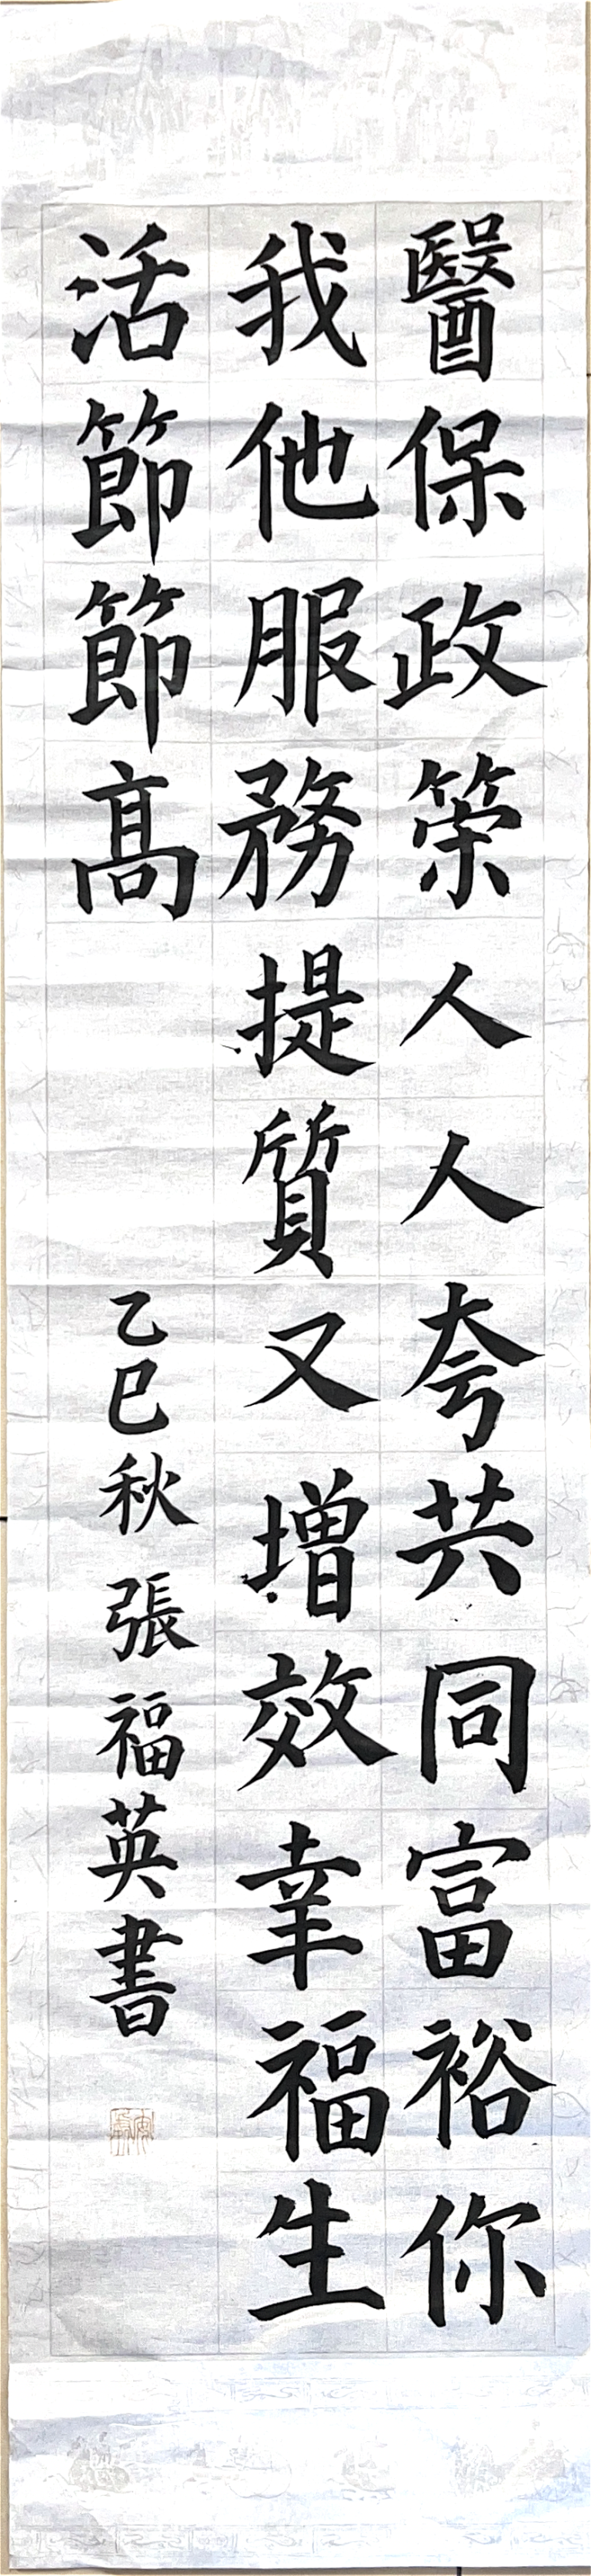 醫保政策人人夸共同富裕你
我他服務提質又增效幸福生
活節節高
乙巳秋 張福英書